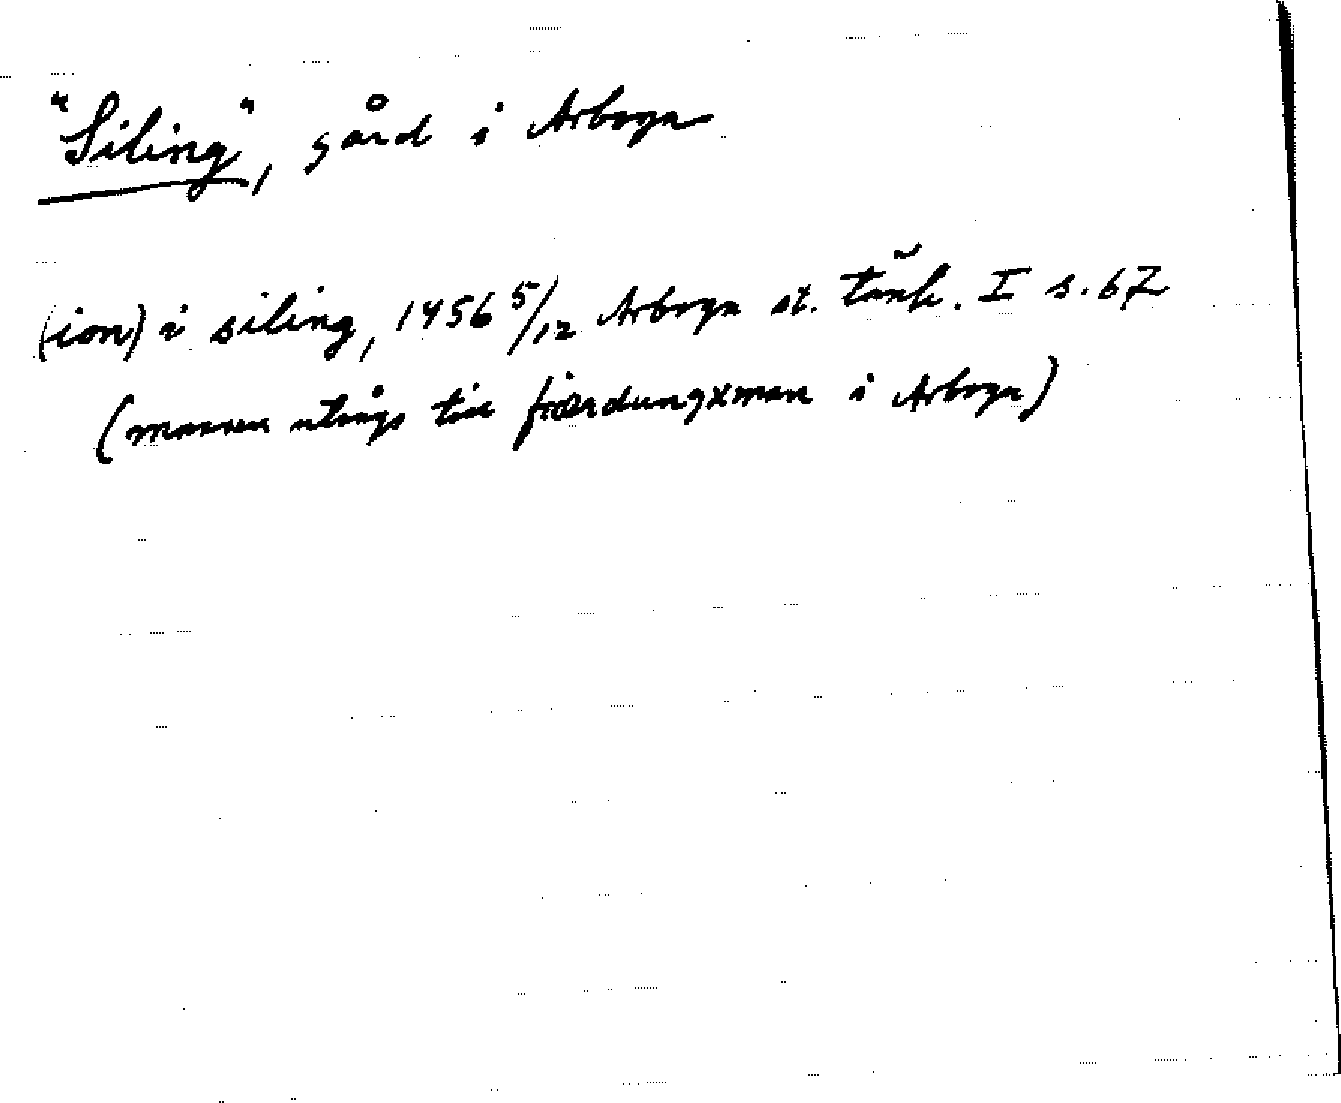 "Siling", gård i Arboga
(ion) i siling, 1456 5/12 Arboga st. tänk. I s. 67
(mannen utsågs till fiærdungxman i Arboga)